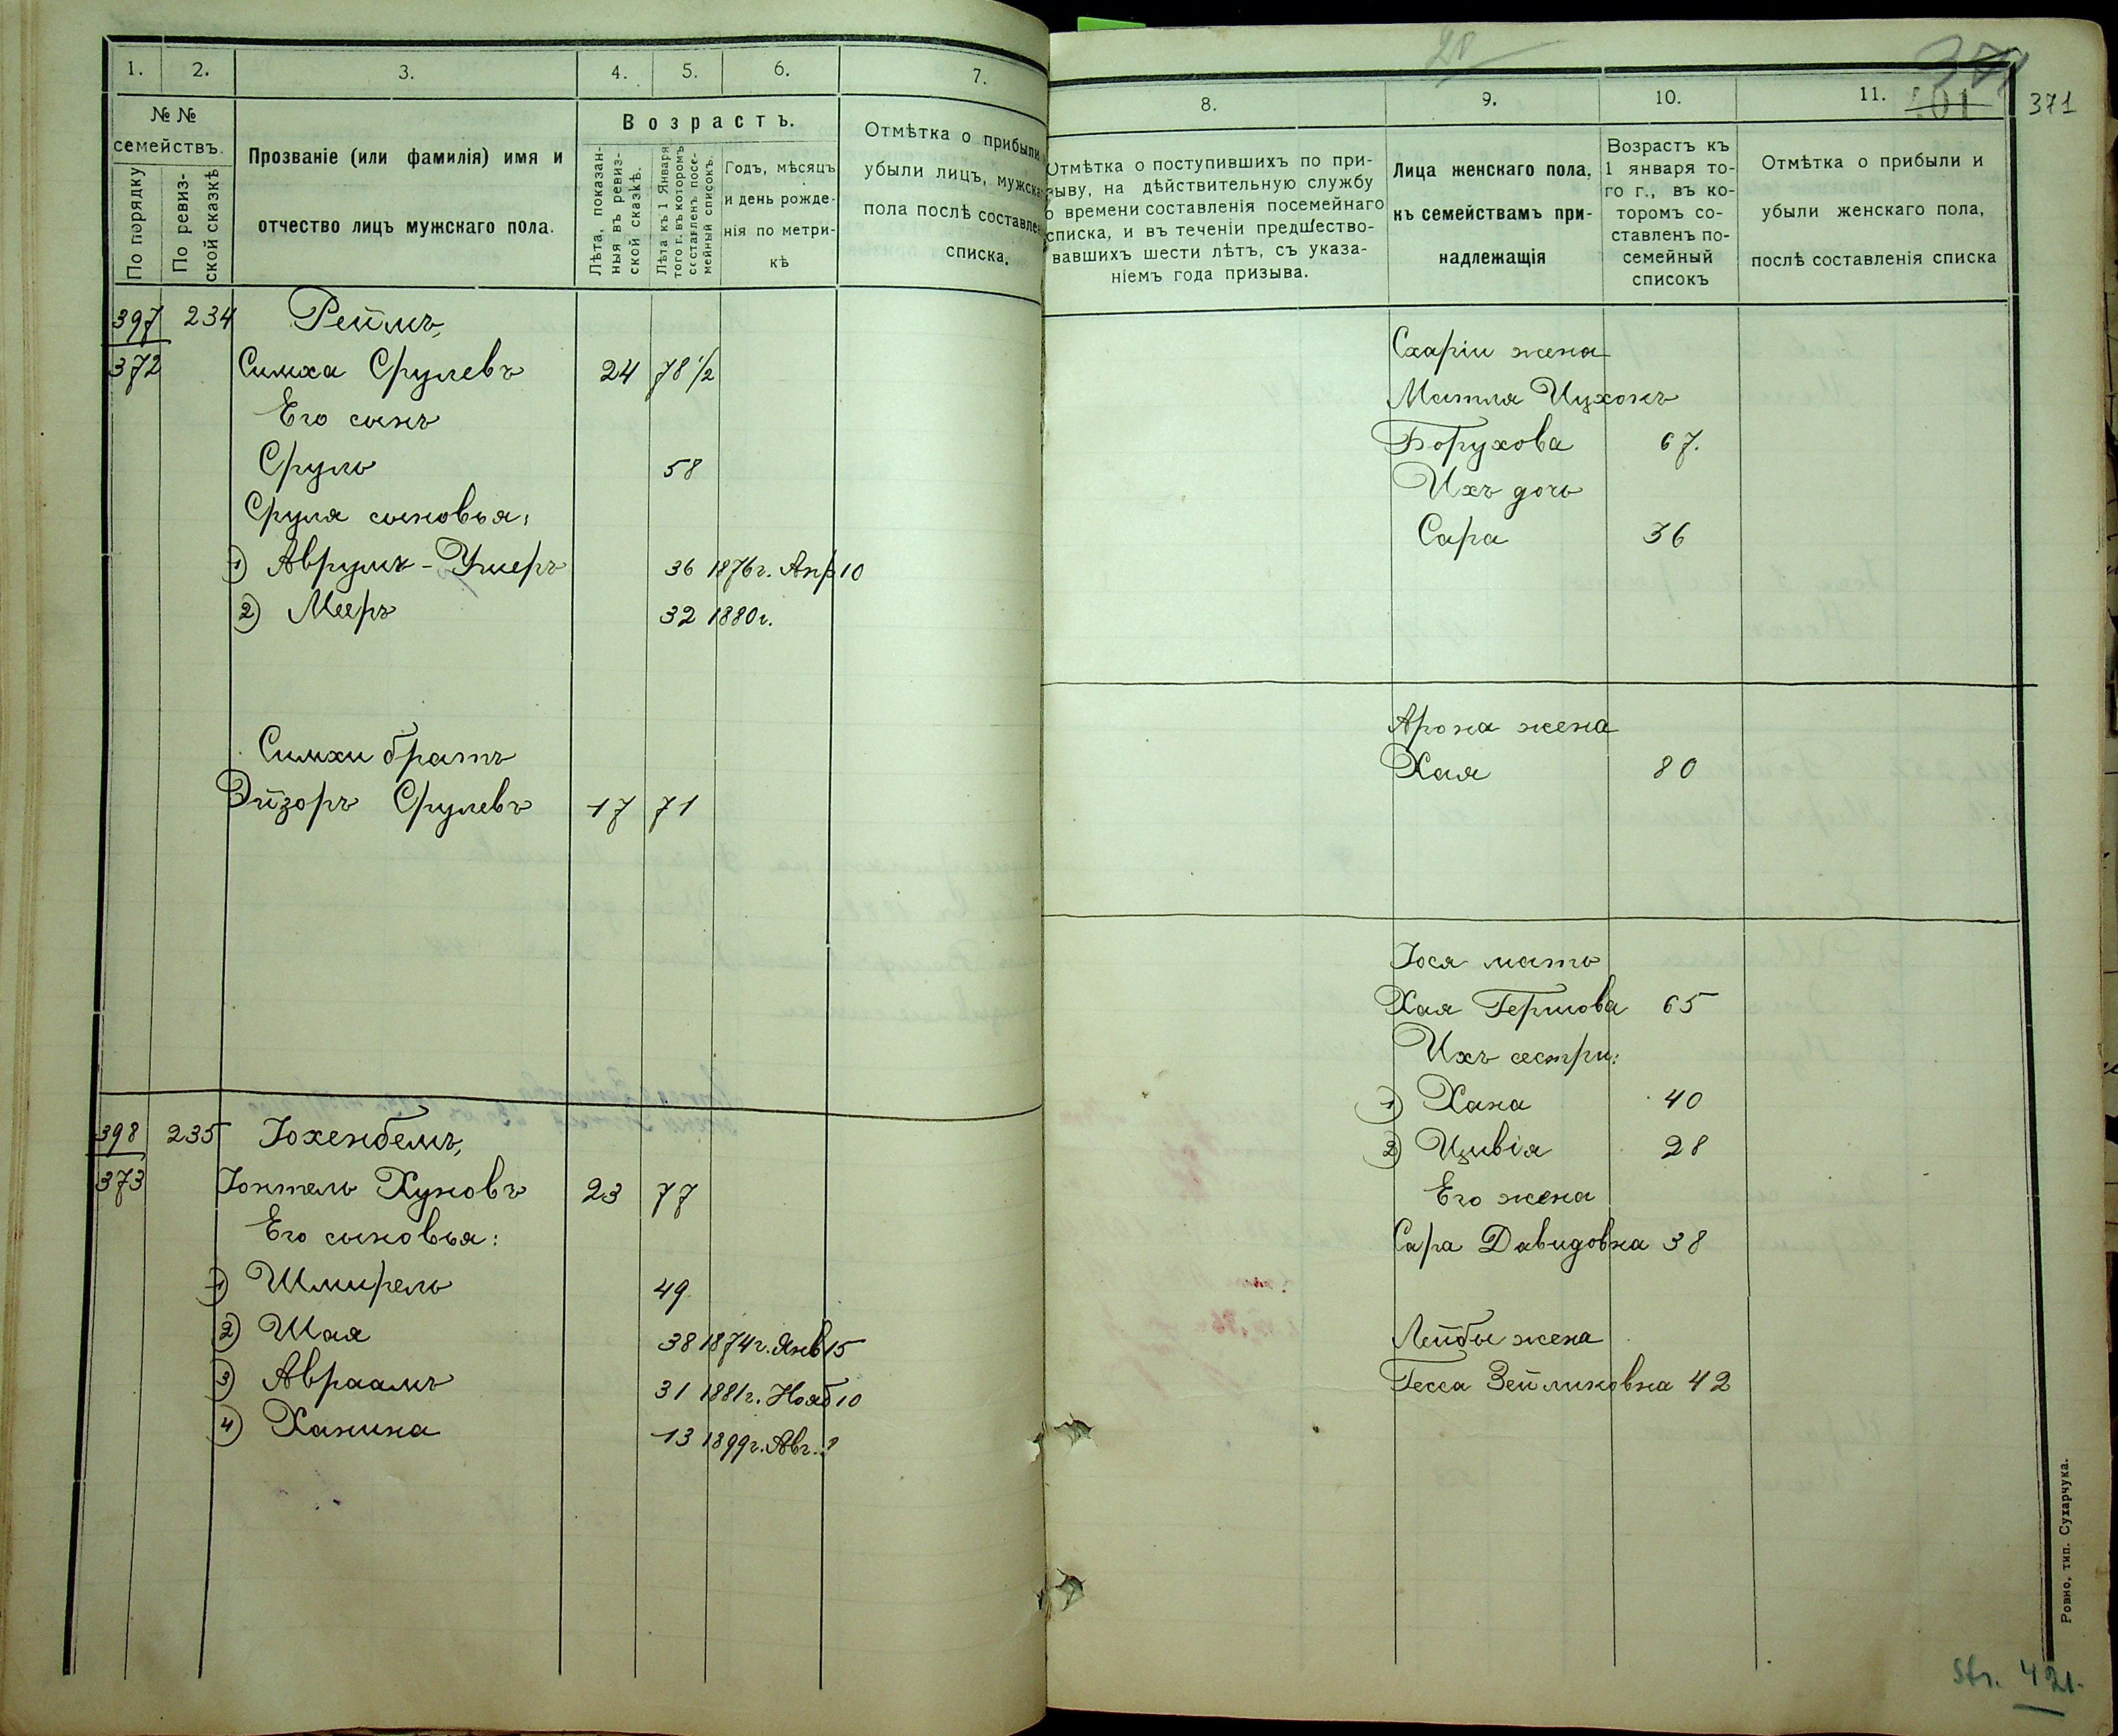 1.
2.
3.
4.
5.
6.
7.
№ №
семействъ.
По порядку
По ревиз-
ской сказкѣ
Прозваніе (или фамилія) имя и
отчество лицъ мужскаго пола.
Возрастъ.
Лѣта, показан-
ныя въ ревиз-
ской сказкѣ.
Лѣта къ 1 Января
того г. въ которомъ
составленъ посе-
мейный списокъ.
Годъ, мѣсяцъ
и день рожде-
нія по метри-
кѣ
Отмѣтка о прибыли
убыли лицъ, мужска
пола послѣ составлен
списка.
397 234 Реймъ,
372 Симха Срулевъ 24 78 1/2
Его сынъ
Сруль 58
Сруля сыновья:
1) Аврумъ-Ушеръ 36 1876г. Апр 10
2) Мееръ 32 1880г.
Симхи братъ
Эйзоръ Срулевъ 17 71
398 235 Юхенбемъ,
373 Іонтель Хуновъ 23 77
Его сыновья:
1) Шмирель 49
2) Шая 38 1874г. Янв 15
3) Авраамъ 31 1881г. Нояб 10
4) Ханина 13 1899г. Авг. 8
20
371
401
371
8.
9.
10.
11.
Отмѣтка о поступившихъ по при-
зыву, на дѣйствительную службу
о времени составленія посемейнаго
списка, и въ теченіи предшество-
вавшихъ шести лѣтъ, съ указа-
ніемъ года призыва.
Лица женскаго пола,
къ семействамъ при-
надлежащія
Возрастъ къ
1 января то-
го г., въ ко-
торомъ со-
ставленъ по-
семейный
списокъ
Отмѣтка о прибыли и
убыли женскаго пола,
послѣ составленія списка
Схаріи жена
Матля Ицхокъ
Борухова 67.
Ихъ дочь
Сара 36
Арона жена
Хая 80
Іося мать
Хая Гершова 65
Ихъ сестри:
1) Хана 40
2) Цивія 28
Его жена
Сара Давидовна 38
Лейбы жена
Гесса Зейликовна 42
Ровно, тип. Сухарчука.
Str. 421.